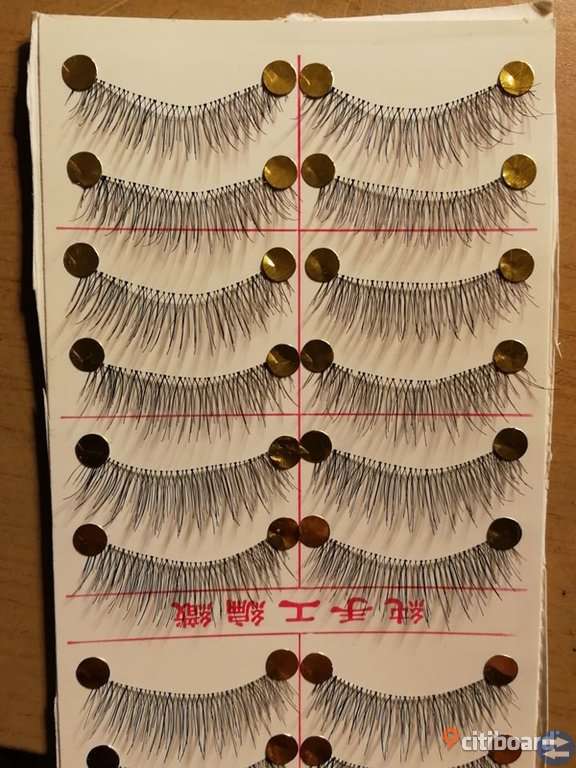 純手工編織
citiboard